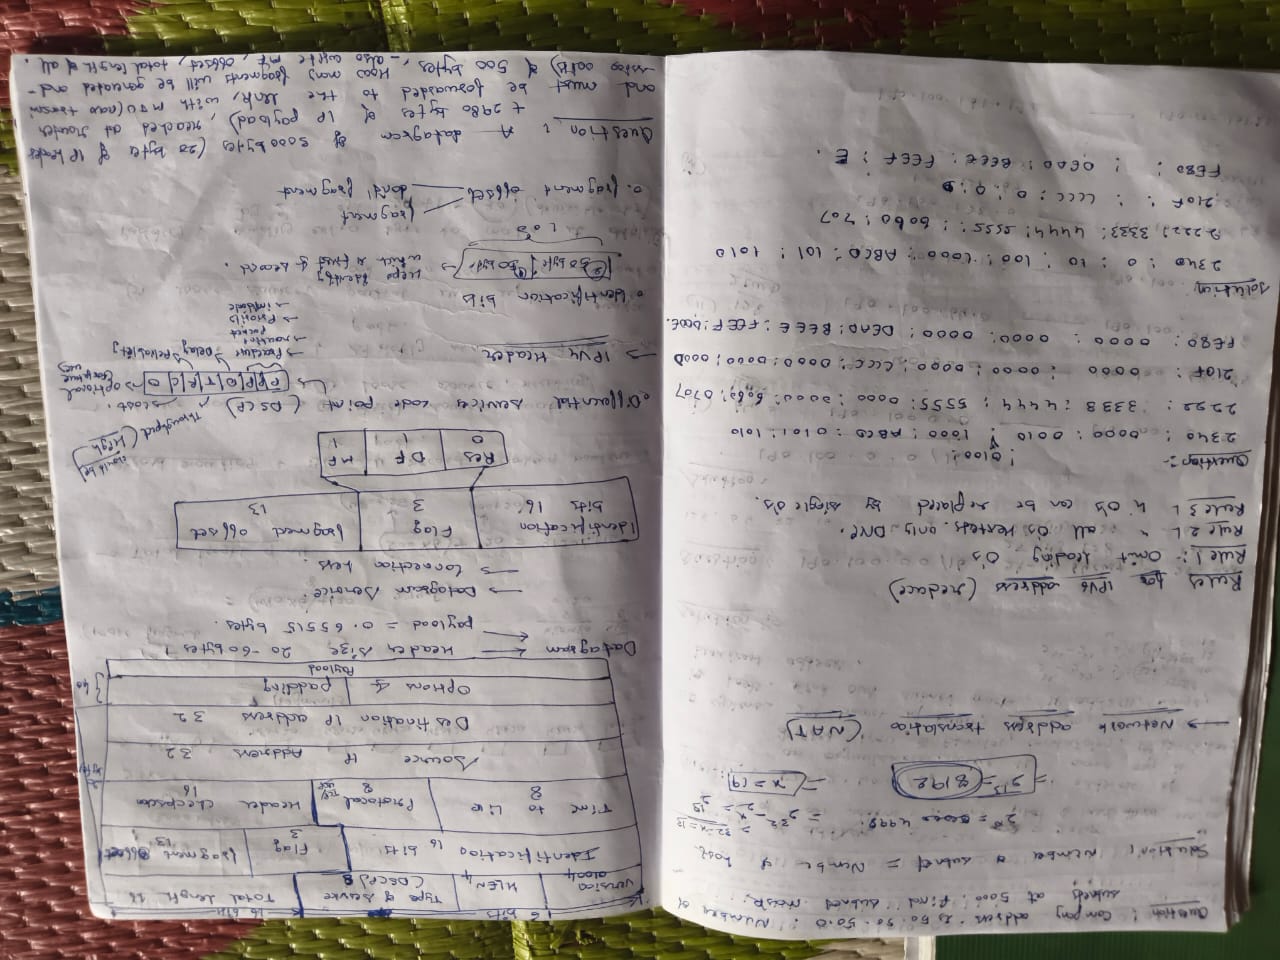 Question : Company address is 50.50.50.0 : Number of
subnets at 5000. find subnet mask.
Solution : Number of subnet = Number of host
2^13 = 4998. = 2^32-x 32-x = 13
= 2^13 = 8192 = x = 19.
→ Network address translation (NAT)
Rules for IPV6 address (reduce)
Rule 1 :- Omit leading 0's
Rule 2 L " all 0's Hextets. only ONE.
Rule 3 L 4 0's can be replaced by single 0's.
Question :-
0100 :
2340 : 0000 : 0010 : 1000 : ABCD : 0101 : 1010
2222 : 3333 : 4444 : 5555 : 0000 : 0000 : 6060 : 0707
210F : 0000 : 0000 : 0000 : CCCC : 0000 : 0000 : 000D
FE80 : 0000 : 0000 : 0000 : DEAD : BEEE : FEEF : 000E.
Solution
2340 : 0 : 10 : 100 : 1000 : ABCD : 101 : 1010
2222 : 3333 : 4444 : 5555 : : 6060 : 707
210F : : CCCC : 0 : 0 : D
FE80 : : DEAD : BEEE : FEEF : E.
16 bits 16 bits
Version 4 HLEN 4 Type of Service (DSCP) 8 Total length 16
Identification 16 bits Flag 3 fragment offset 13
Time to Live 8 Protocal 8 Header checksum 16
Source IP Address 32
Destination IP address 32
Options & padding } 40
Payload
Datagram ← Header size 20-60 bytes
← payload = 0.65515 bytes.
→ Datagram Service.
→ Connection less.
Identification bits 16 Flag 3 fragment offset 13
Res 0 DF 1 MF 1
Differential services code point (DSCP) Throughput (should be High)
cost.
P P P D T R C 0 → optional
→ IPV4 Header
Delay Reliability
→ Priority
Identification bits
50 byte 50 byte → Heps Identify
which is first & second.
100
fragment offset fragment
dont fragment
Question : A datagram of 3000 bytes (20 bytes of IP header
+ 2980 bytes of IP payload), reached at router
and must be forwarded to the link, with MTU (max transmi
-ssion unit) of 500 bytes, How many fragments will be generated and-
- also write MF, offset, total length of all.